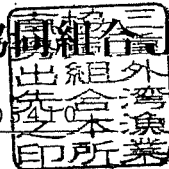 協同組合
三重外湾漁業
協同組合本所
出先之印